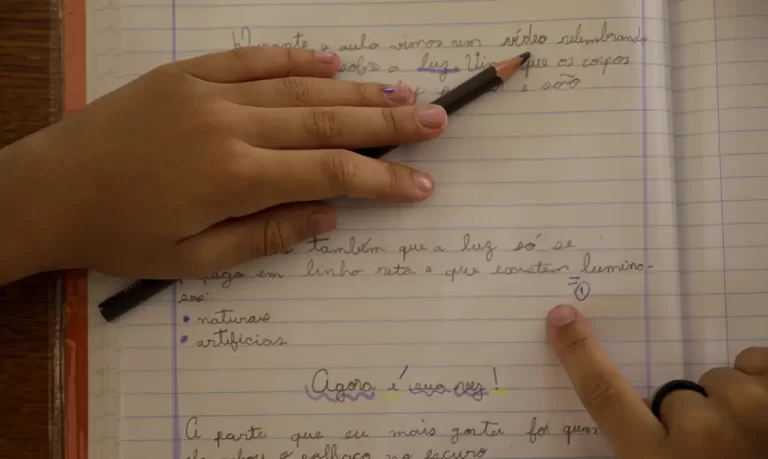 Durante a aula vimos um vídeo relembrando
sobre a luz. Vimos que os corpos
e são
também que a luz só se
em linha reta e que existem lumino-
sos:
① 
• naturais
• artificias
Agora é sua vez!
A parte que eu mais gostei foi quan
o palhaço no escuro